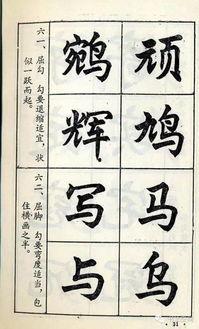 顽鸠马乌
鹓辉写与
六一、屈勾 勾要退缩适宜，状
似一跃而起。
六二、屈脚 勾要弯度适当，包
住横画之半。
· 31 ·